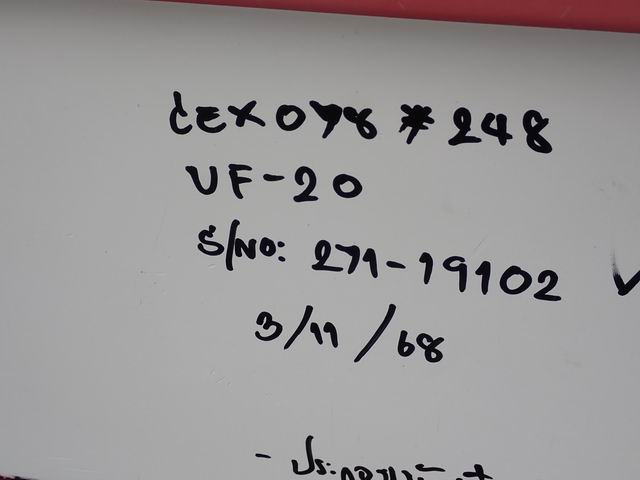 CEX078 * 248
UF-20
S/NO: 271-19102
3/11/68